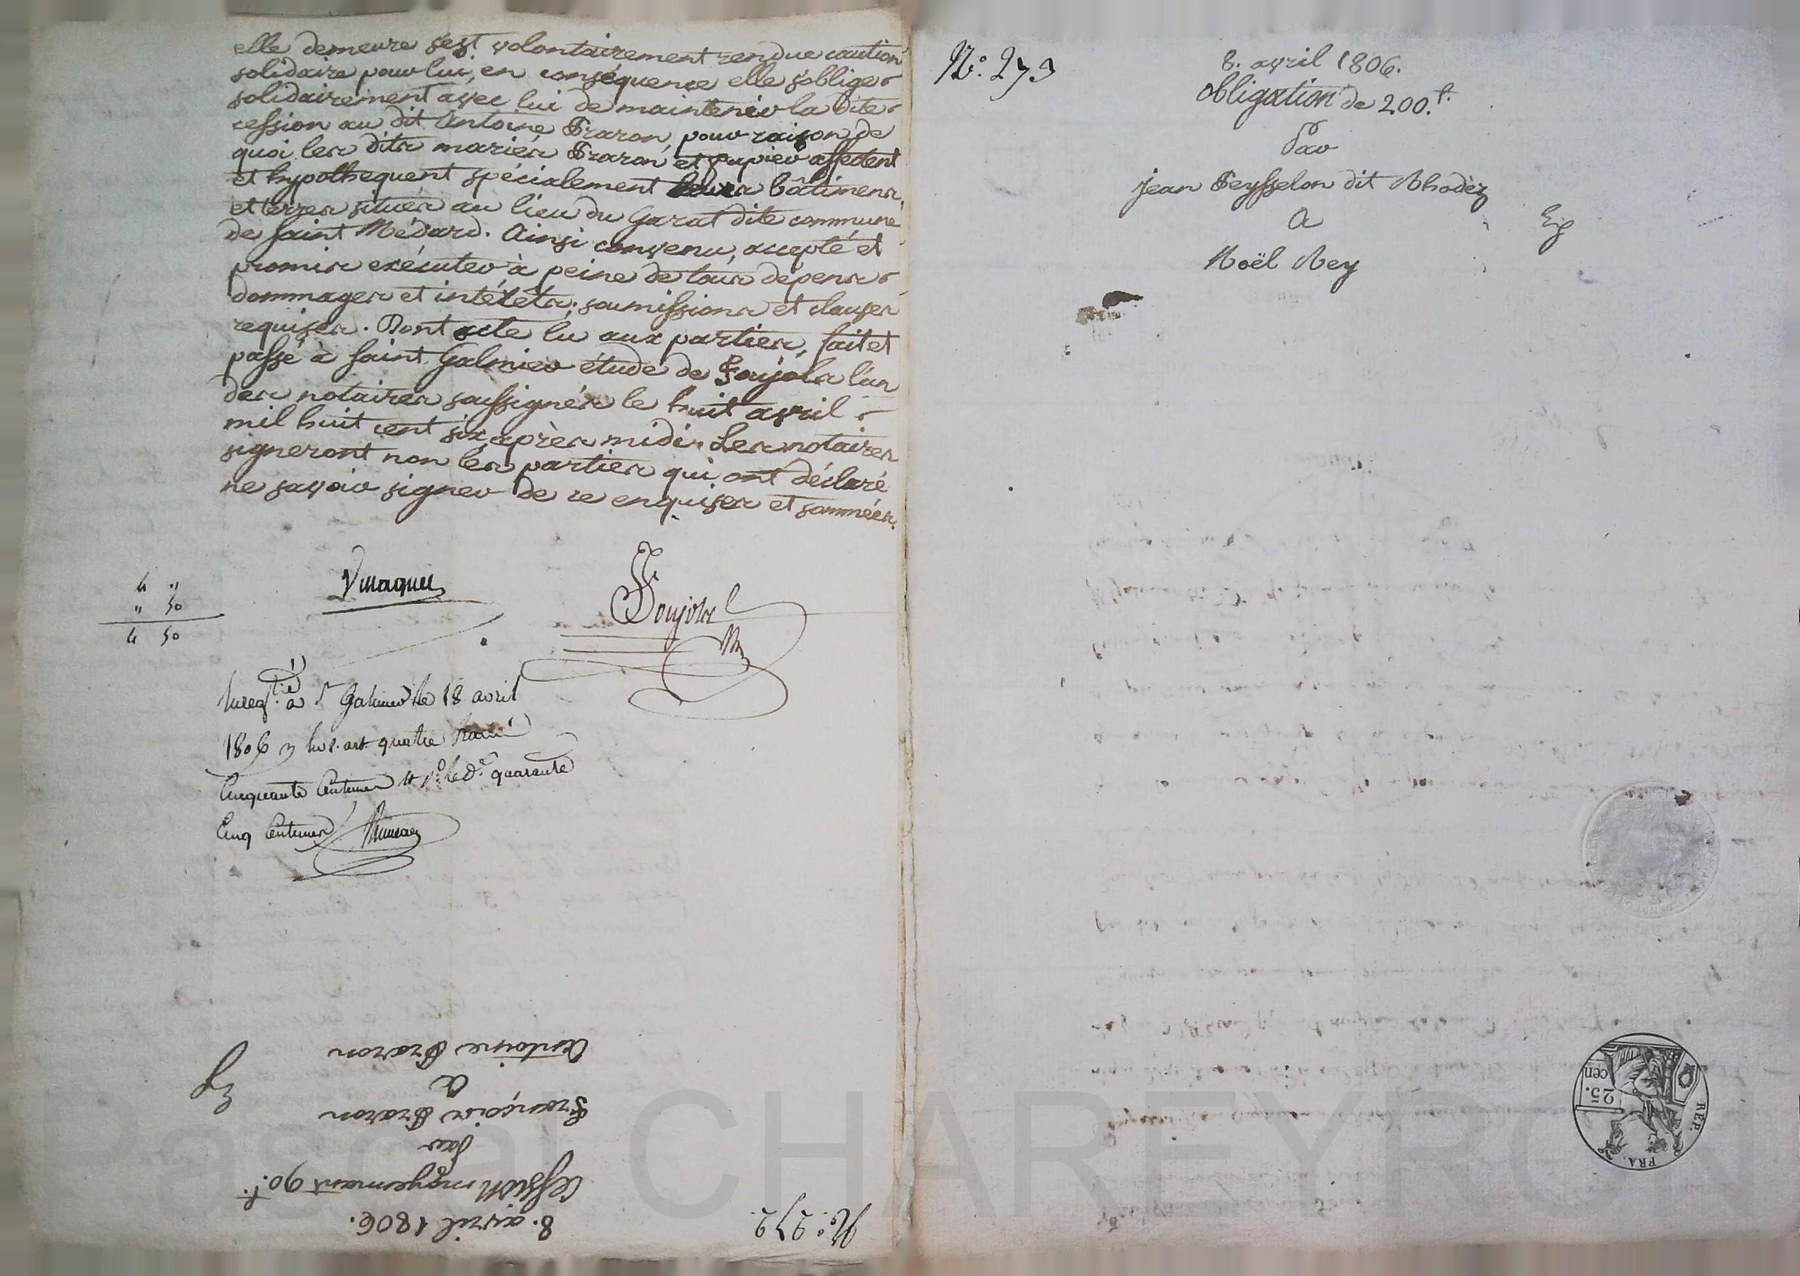 elle demeure s'est volontairement rendue caution
solidaire pour lui, en conséquence elle s'oblige
solidairement avec lui de maintenir la dite
cession au dit Antoine Fraron, pour raison de
quoi les dits mariés Fraron et Pupier affectent
et hypothequent spécialement leurs bâtimens
et terres situés au lieu du Garat dite commune
de Saint Médard. Ainsi convenu, accepté et
promis exécuter à peine de tous dépens
dommages et intérêts; soumissions et clauses
requises. Dont acte lu aux parties, fait et
passé à Saint Galmier étude de Foujols l'un
des notaires soussignés le huit avril
mil huit cent six après midi. Les notaires
signeront non les parties qui ont déclaré
ne savoir signer de ce enquises et sommées.
4 "
" 50
4 50
Foujols
Nre
à St Galmier le 18 avril
1806 quatre francs
Cinquante Centimes quarante
Cinq Centimes
N.o 272.
8. avril 1806.
Cession moyennant 90.f.
Par
François Fraron
A
Antoine Fraron
Eg
N.o 273
8. avril 1806.
Obligation de 200.f.
Par
Jean Feysselon dit Rhodèz
A
Noël Rey
Eg
25.
cen
REP.
FRA.
Pascal CHAREYRON